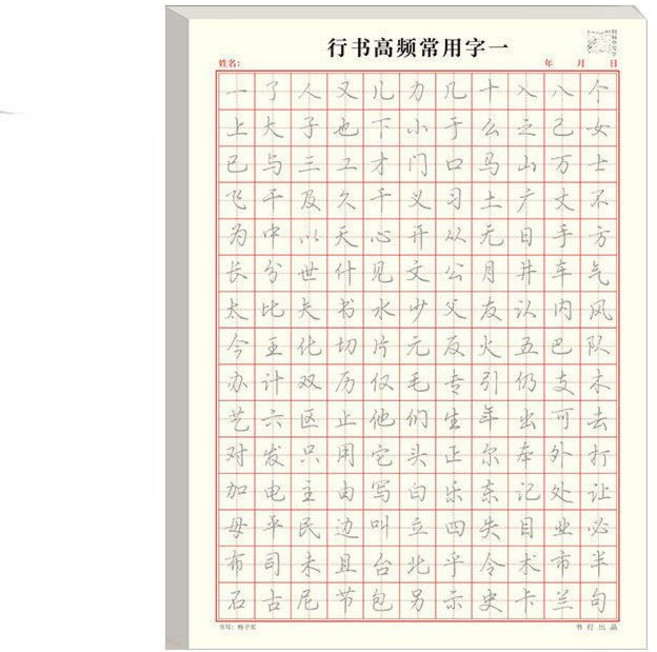 行书高频常用字一
姓名： 年 月 日
一了人又儿力几十入八个
上大子也下小于么之己女
已与三工才门口马山万士
飞干及久千义习土广丈不
为中以天心开从无日手方
长分世什见文公月井车气
太比夫书水少父友认内风
今王化切片元反火五巴队
办计双历仅毛专引仍支木
艺六区止他们生年出可去
对发只用它头正尔本外打
加电主由写白乐东记处让
母平民边叫立四失目业必
布司未且台北乎令术市半
石古尼节包另示史卡兰句
书写：杨子实 书行出品